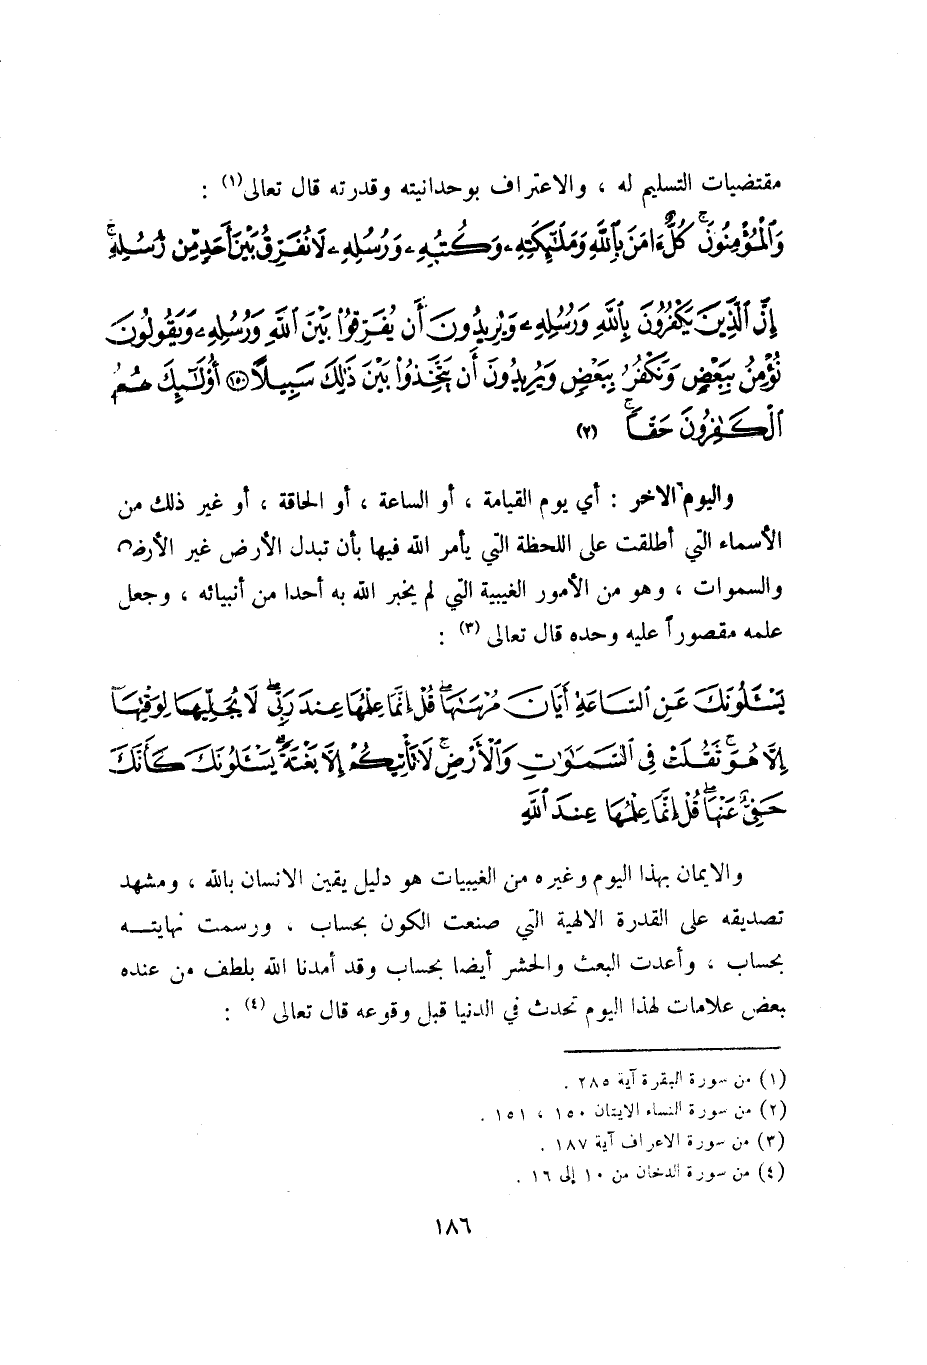 مقتضيات التسليم له ، والاعتراف بوحدانيته وقدرته قال تعالى (١) :
وَٱلْمُؤْمِنُونَۚ كُلٌّ ءَامَنَ بِٱللَّهِ وَمَلَٰٓئِكَتِهِۦ وَكُتُبِهِۦ وَرُسُلِهِۦ لَا نُفَرِّقُ بَيْنَ أَحَدٍ مِّن رُّسُلِهِۦۚ
إِنَّ ٱلَّذِينَ يَكْفُرُونَ بِٱللَّهِ وَرُسُلِهِۦ وَيُرِيدُونَ أَن يُفَرِّقُوا۟ بَيْنَ ٱللَّهِ وَرُسُلِهِۦ وَيَقُولُونَ
نُؤْمِنُ بِبَعْضٍ وَنَكْفُرُ بِبَعْضٍ وَيُرِيدُونَ أَن يَتَّخِذُوا۟ بَيْنَ ذَٰلِكَ سَبِيلًا ١٥٠ أُو۟لَٰٓئِكَ هُمُ
ٱلْكَٰفِرُونَ حَقًّاۚ (٢)
واليوم الاخر : أي يوم القيامة ، أو الساعة ، أو الحاقة ، أو غير ذلك من
الأسماء التي أطلقت على اللحظة التي يأمر الله فيها بأن تبدل الأرض غير الأرض
والسموات ، وهو من الأمور الغيبية التي لم يخبر الله به أحدا من أنبيائه ، وجعل
علمه مقصوراً عليه وحده قال تعالى (٣) :
يَسْـَٔلُونَكَ عَنِ ٱلسَّاعَةِ أَيَّانَ مُرْسَىٰهَاۖ قُلْ إِنَّمَا عِلْمُهَا عِندَ رَبِّىۖ لَا يُجَلِّيهَا لِوَقْتِهَآ
إِلَّا هُوَۚ ثَقُلَتْ فِى ٱلسَّمَٰوَٰتِ وَٱلْأَرْضِۚ لَا تَأْتِيكُمْ إِلَّا بَغْتَةًۗ يَسْـَٔلُونَكَ كَأَنَّكَ
حَفِىٌّ عَنْهَاۖ قُلْ إِنَّمَا عِلْمُهَا عِندَ ٱللَّهِ
والايمان بهذا اليوم وغيره من الغيبيات هو دليل يقين الانسان بالله ، ومشهد
تصديقه على القدرة الالهية التي صنعت الكون بحساب ، ورسمت نهايتـــه
بحساب ، وأعدت البعث والحشر أيضا بحساب وقد أمدنا الله بلطف من عنده
بعض علامات لهذا اليوم تحدث في الدنيا قبل وقوعه قال تعالى (٤) :
(١) من سورة البقرة آية ٢٨٥ .
(٢) من سورة النساء الايتان ١٥٠ ، ١٥١ .
(٣) من سورة الاعراف آية ١٨٧ .
(٤) من سورة الدخان من ١٠ إلى ١٦ .
١٨٦